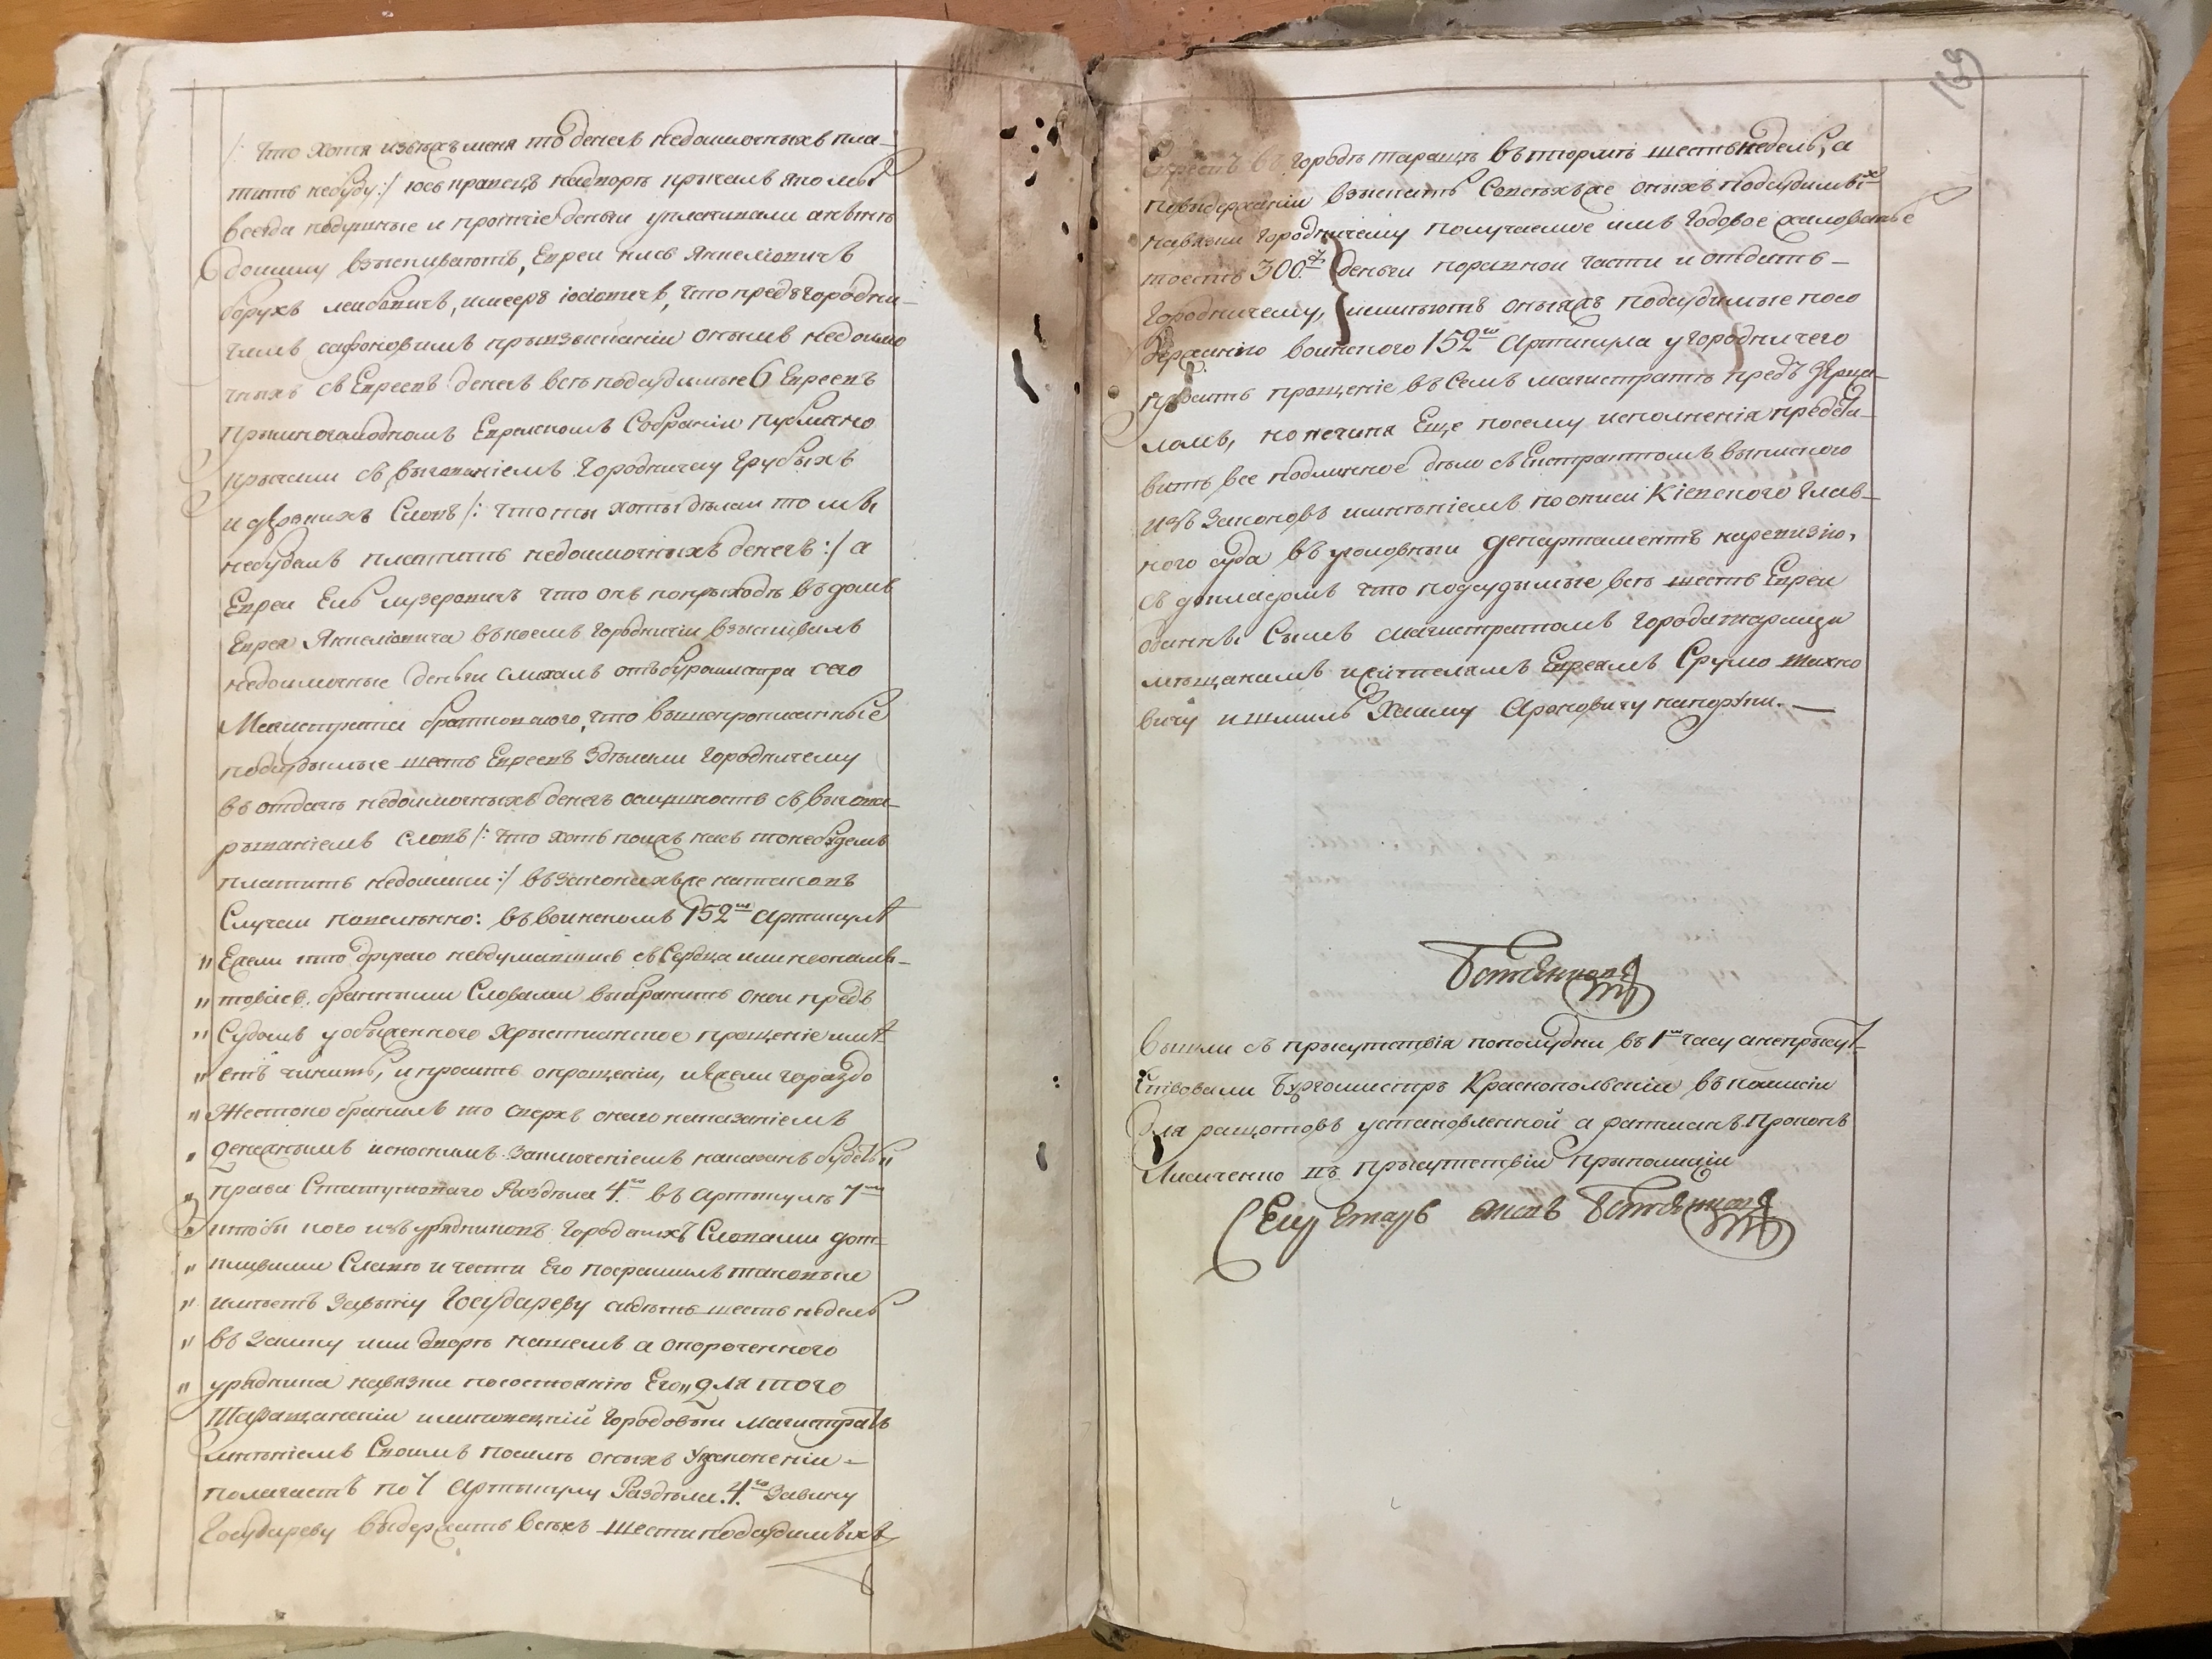 /: что хотя изъвсхъ меня то денегъ недоимочныхъ пла-
тить небуду :/ юсь кравецъ надворъ кричалъ что мы
всегда подушные и протчие деньги уплачивали а невѣсть
доимку взыскиваютъ, Еврей Янкеліовичъ
борухъ лейбовичъ, имееръ іосіовичъ, что предъ городни-
чимъ сафоновимъ при взысканіи онымъ недоимо
чныхъ съ Евреевъ денегъ всѣ подсудимые 6 Евреевъ
при многолюдномъ Еврейскомъ Собраніи публично
кричали съ выговоромъ Городничему грубыхъ
и дерзкихъ Словъ /: что ты хоть дѣлай то мы
небудемъ платить недоимочныхъ денегъ :/ а
Еврей Ель лузеровичъ что онъ поприходѣ въ домъ
Еврея Янкеліовича въ коемъ городничій взыскивалъ
недоимочные деньги слихалъ отъ бурмистра сего
Магистрата братковского, что вышепрописанные
подсудимые шесть Евреевъ здѣлали городничему
въ отдачѣ недоимочныхъ денегъ ослушность съ выгова-
рываніемъ словъ /: что хотъ насъ то небудемъ
платить недоимки :/ въ законахъ же натаковъ
Случай повелѣнно: въ воинскомъ 152м Артикулѣ
„ Ежели кто другаго невдумавшись съ Сердца или неопамя-
„ товась бранными Словами выбранитъ оной предъ
„ Судомъ у обиженного Христианское прощеніе имѣ-
„ етъ чинить, и просить о прощеніи, и Ежели гораздо
„ Жестоко бранилъ то сверхъ оного наказаніемъ
„ денежнымъ и сноснимъ заключеніемъ наказанъ будетъ „
права Статутового Раздѣла 4го въ артикулѣ 7м
„ ктобы кого изъ урядниковъ городскихъ Словами дот-
„ кливыми Славы и чести Его посрамилъ таковый
„ имѣетъ за вину Государеву сидѣть шесть недель
„ въ замку или дворѣ нашемъ а опороченного
„ урядника навязки посостоянію Его „ для того
Таращанскій городовый Магистратъ
мнѣніемъ Своимъ посилѣ оныхъ узаконеніи -
полагаетъ по 7 артикулу Раздѣла 4го за вину
Государеву выдержать всѣхъ шести подсудимыхъ
Евреевъ въ городѣ таращѣ въ тюрмѣ шесть недель, а
повыдержаніи взыскать Совсѣхъ же оныхъ подсудимыхъ
навязки городничему получаемое имъ годовое жалованье
то есть 300 р. деньги поравной части и отдать -
Городничему, имѣютъ оныяжъ подсудимые посо
держанію воинского 152го Артикула у городничего
просить прощеніе въ Семъ магистратѣ предъ Зерца-
ломъ, но нечиня Еще посему исполненія предста-
вить все подлинное дѣло съ Екстрактомъ выписного
изъ законовъ и мнѣніемъ по описи Кіевского глав-
ного суда въ уголовный департаментъ наревизію,
съ докладомъ что подсудымые всѣ шесть Евреи
отданны Сымъ магистратомъ города таращи
мѣщанамъ и жителямъ Евреямъ Срулю
вичу и шмиль Хаиму Ароновичу напоруки. —
Вышли съ присутствія пополудни въ 1м часу а неприсут-
ствовали Бургомистръ Краснопольскій въ комисіи
для ращотовъ установленной а ратманъ Прокопъ
Лисиченко въ присутствіи приполиціи